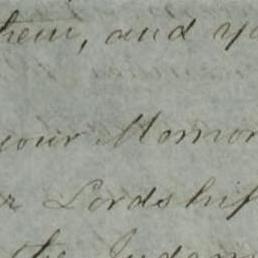 them, and yo
your Memor
r Lordship
the Judgm